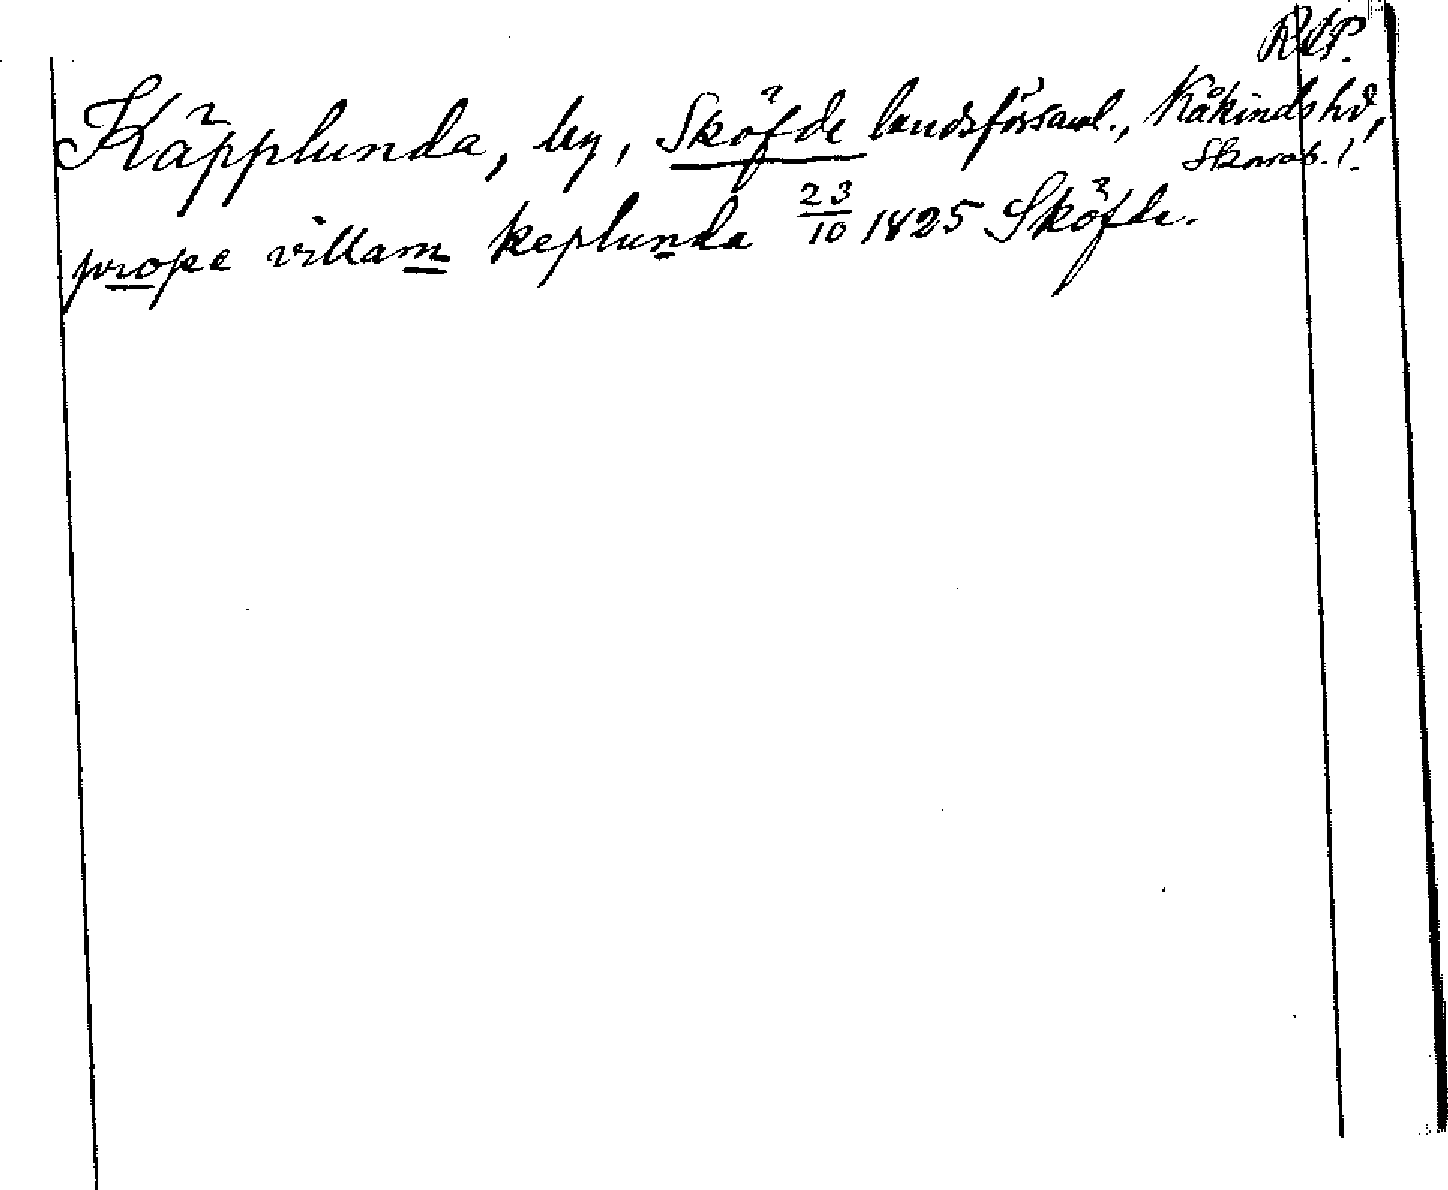 RAP.
Käpplunda, by, Sköfde landsförsaml., Kåkinds hd,
Skarab. l.
prope villam keplunda 23/10 1425 Sköfde.